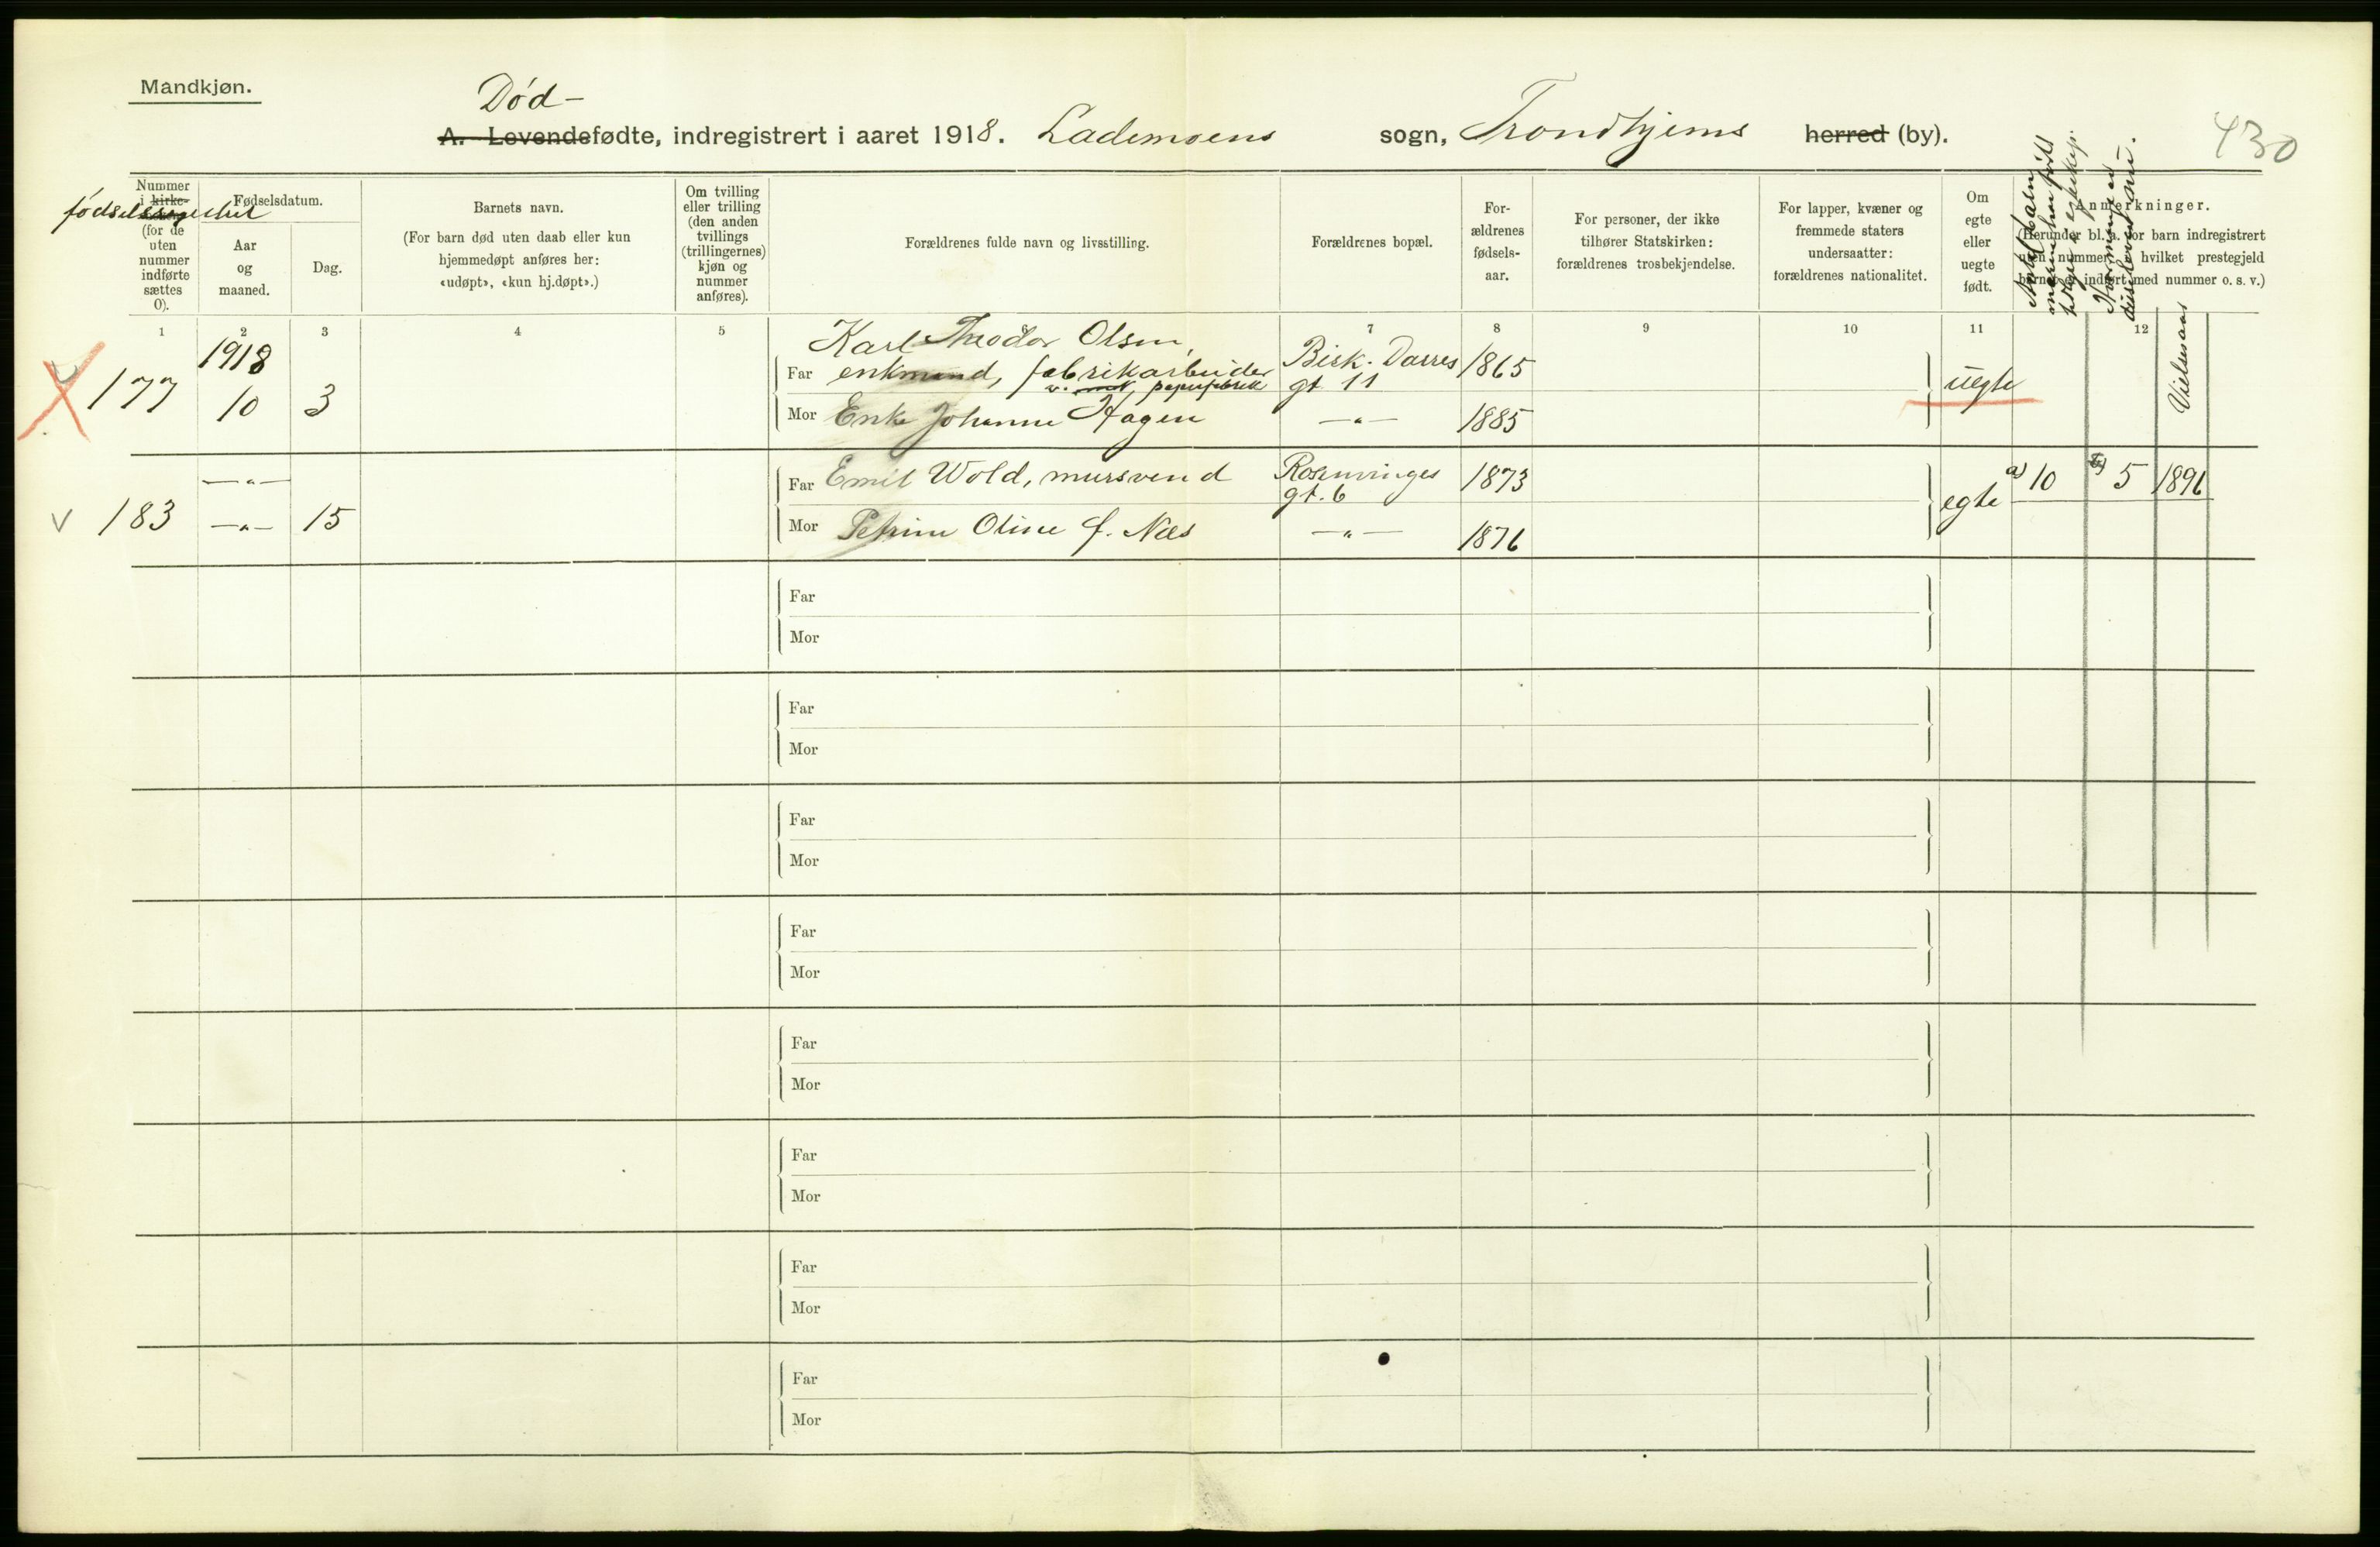 Mandkjøn.
Død-
A. Levendefødte, indregistrert i aaret 1918. Lademoens sogn, Trondhjems herred (by).
430
Nummer
i kirke-
fødselsregistret
(for de
uten
nummer
indførte
sættes
0).
Fødselsdatum.
Aar
og
maaned.
Dag.
Barnets navn.
(For barn død uten daab eller kun
hjemmedøpt anføres her:
«udøpt», «kun hj.døpt».)
Om tvilling
eller trilling
(den anden
tvillings
(trillingernes)
kjøn og
nummer
anføres).
Forældrenes fulde navn og livsstilling.
Forældrenes bopæl.
For-
ældrenes
fødsels-
aar.
For personer, der ikke
tilhører Statskirken:
forældrenes trosbekjendelse.
For lapper, kvæner og
fremmede staters
undersaatter:
forældrenes nationalitet.
Om
egte
eller
uegte
født.
Anmerkninger.
(Herunder bl. a. for barn indregistrert
uten nummer, i hvilket prestegjeld
barnet er indført med nummer o. s. v.)
Antal barn
moren har født
Hvormange er
Vielsesaar
1 2 3 4 5 6 7 8 9 10 11 12
177 1918 10 3
Karl Theodor Olsen,
Far enkmand, fabrikarbeider
v. papirfabrik
Bisk. Darres
gt 11
1865
uegte
Mor Enke Johanne Hagen —"— 1885
183 —"— —"— 15
Far Emil Wold, mursvend
Rosenvinges
gt. 6
1873
egte
a) 10 b) 5 1896
Mor Petrine Oline f. Næs —"— 1876
Far
Mor
Far
Mor
Far
Mor
Far
Mor
Far
Mor
Far
Mor
Far
Mor
Far
Mor